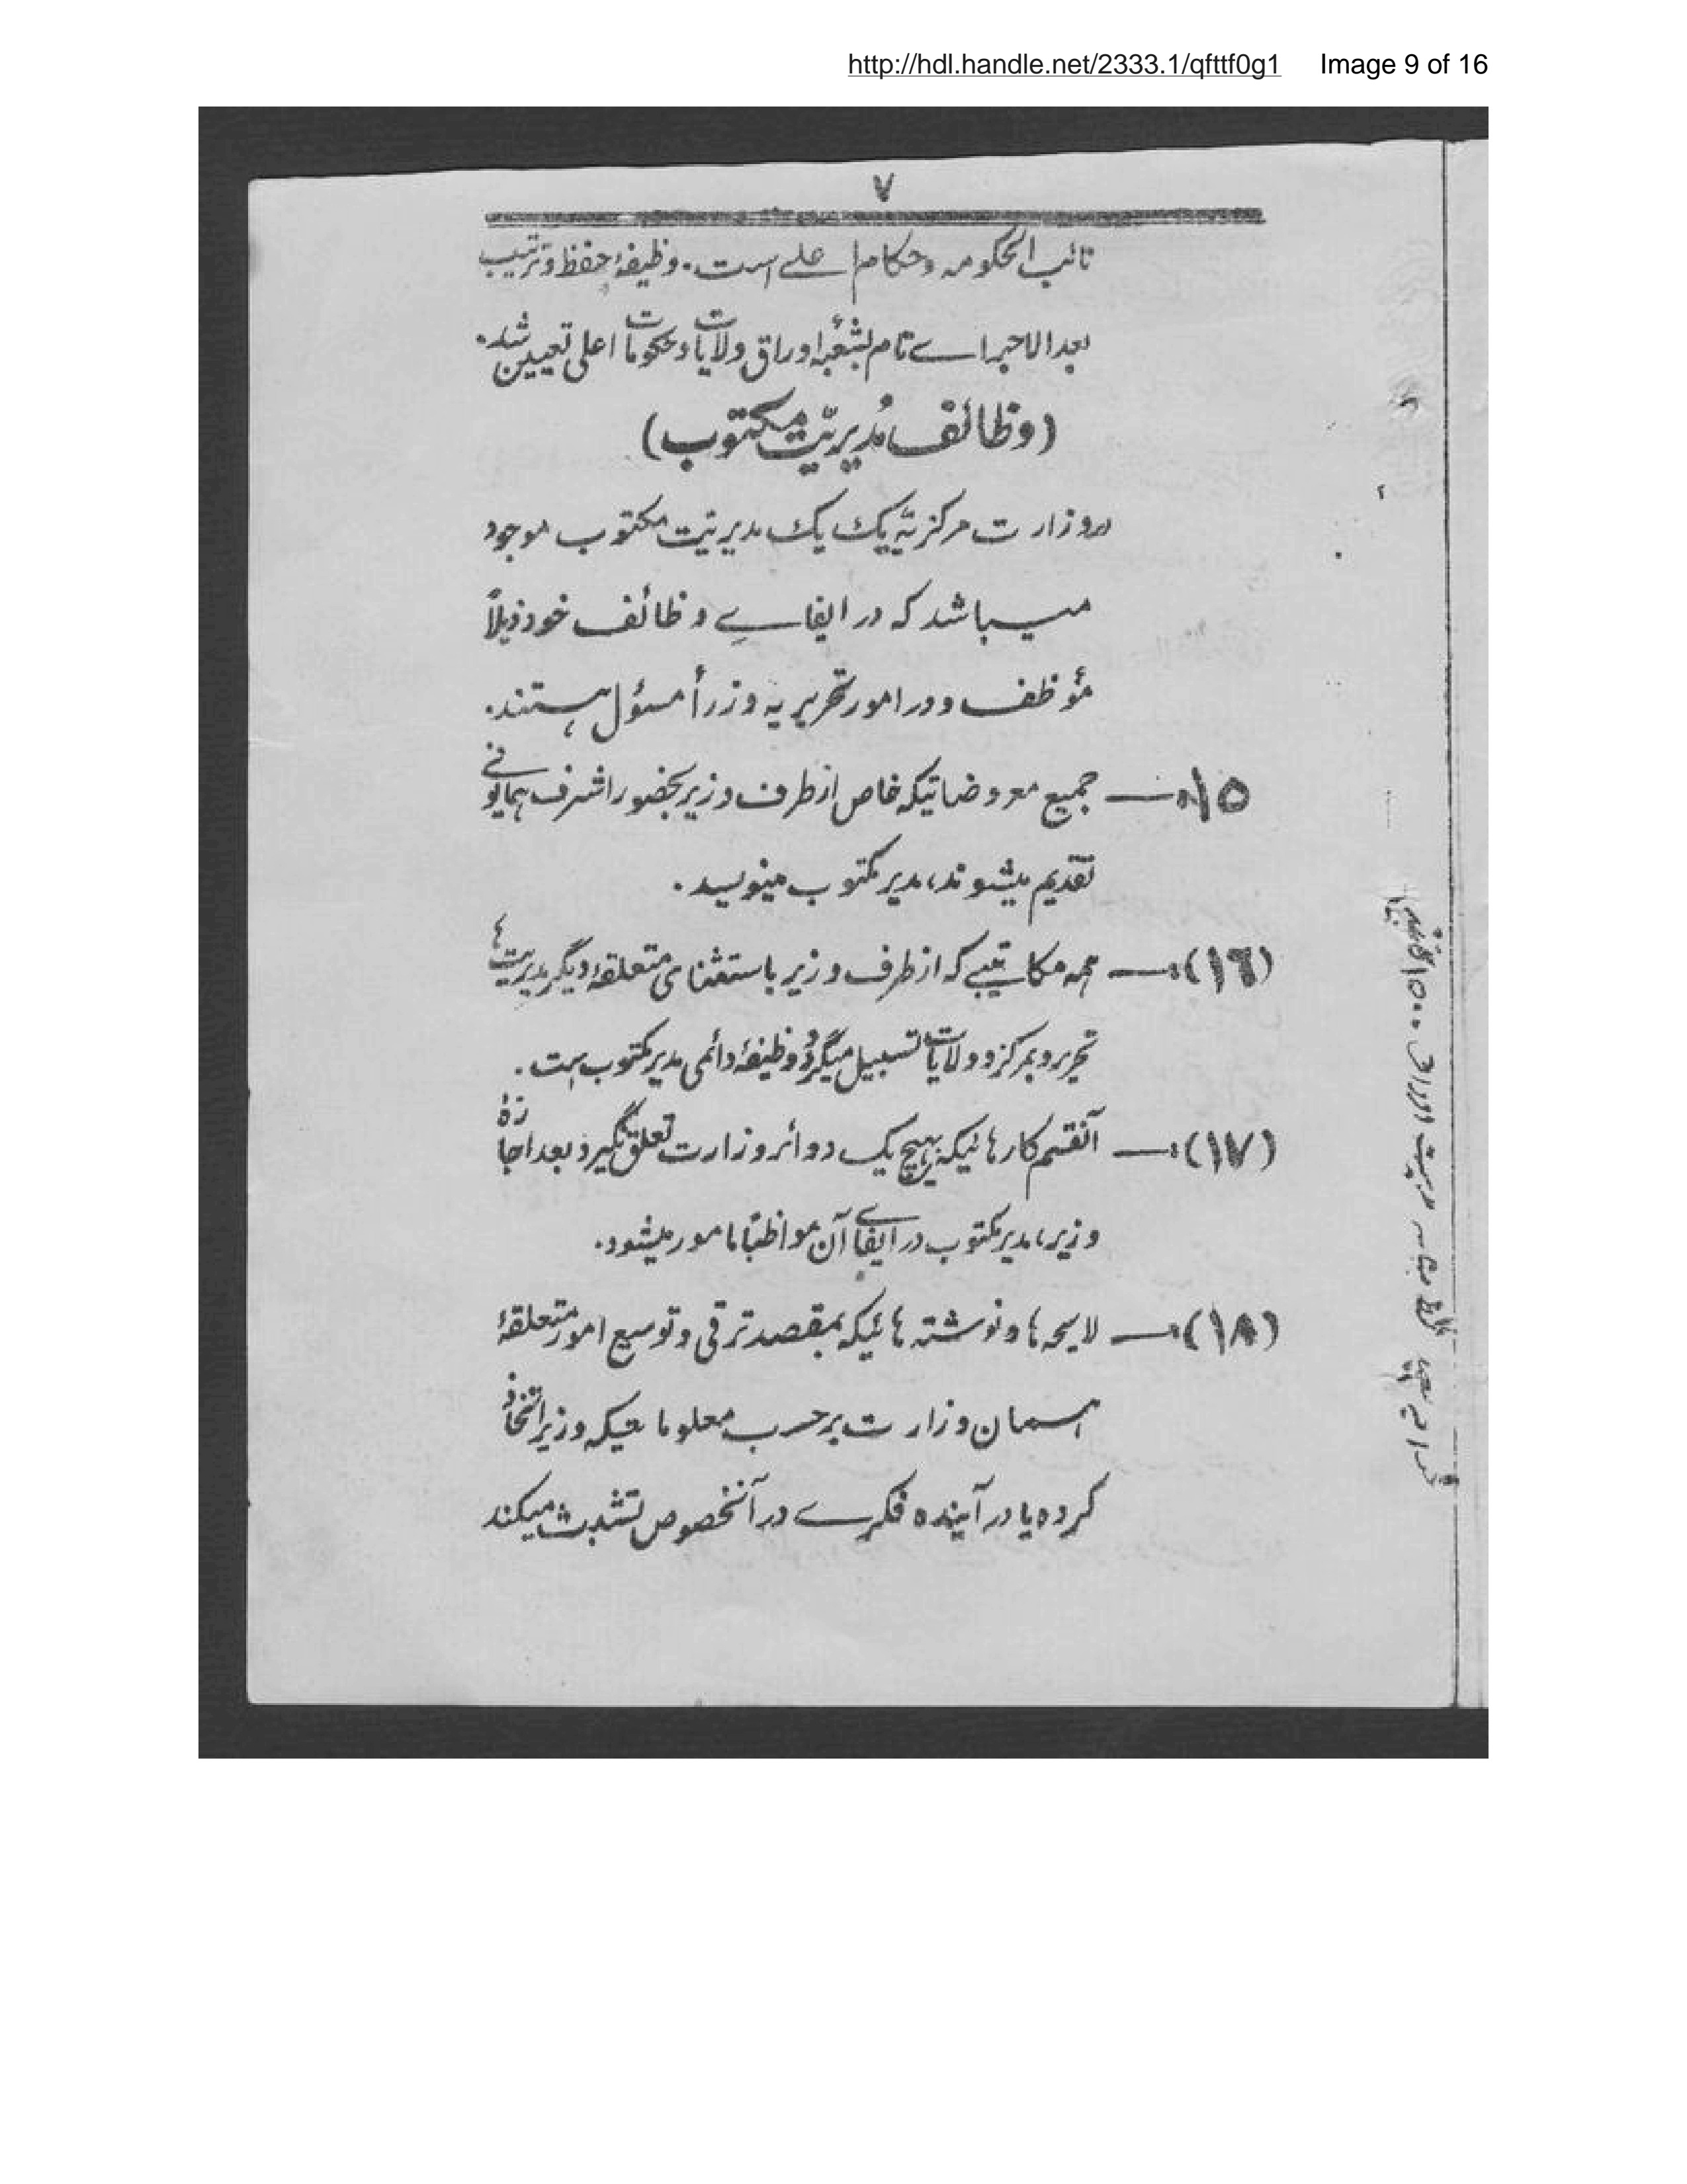 http://hdl.handle.net/2333.1/qfttf0g1 Image 9 of 16
۷
نائب الحکومه و حکام اعلے است. وظیفهٔ حفظ و ترتیب
بعد الاجراے تام بشعبهٔ اوراق ولایات و حکومات اعلی تعیین شد.
(وظائف مُدیریّت مکتوب)
در وزارت مرکزیّه یک یک مدیریّت مکتوب موجود
میباشد که در ایفاے وظائف خود ذیلاً
مؤظف و در امور تحریریه وزرأ مسئول هستند.
۱۵:— جمیع معروضاتیکه خاص از طرف وزیر بحضور اشرف همایونے
تقدیم میشوند، مدیر مکتوب مینویسد.
(۱٦):— همه مکاتیبے که از طرف وزیر باستثنای متعلقهٔ دیگر مدیریت‌ها
تحریر و بمرکز و ولایات تسبیل میگردد وظیفهٔ دائمی مدیر مکتوب است.
(۱۷):— آنقسم کارهائیکه بهیچ یک دوائر وزارت تعلق نگیرد بعد اجازهٔ
وزیر، مدیر مکتوب در ایفاے آن مواظبًا مامور میشود.
(۱۸):— لایحه ها و نوشته هائیکه بمقصد ترقی و توسیع امور متعلقهٔ
همان وزارت بر حسب معلوماتیکه وزیر اتخاذ
کرده یا در آینده فکرے در آنخصوص تشبث میکند